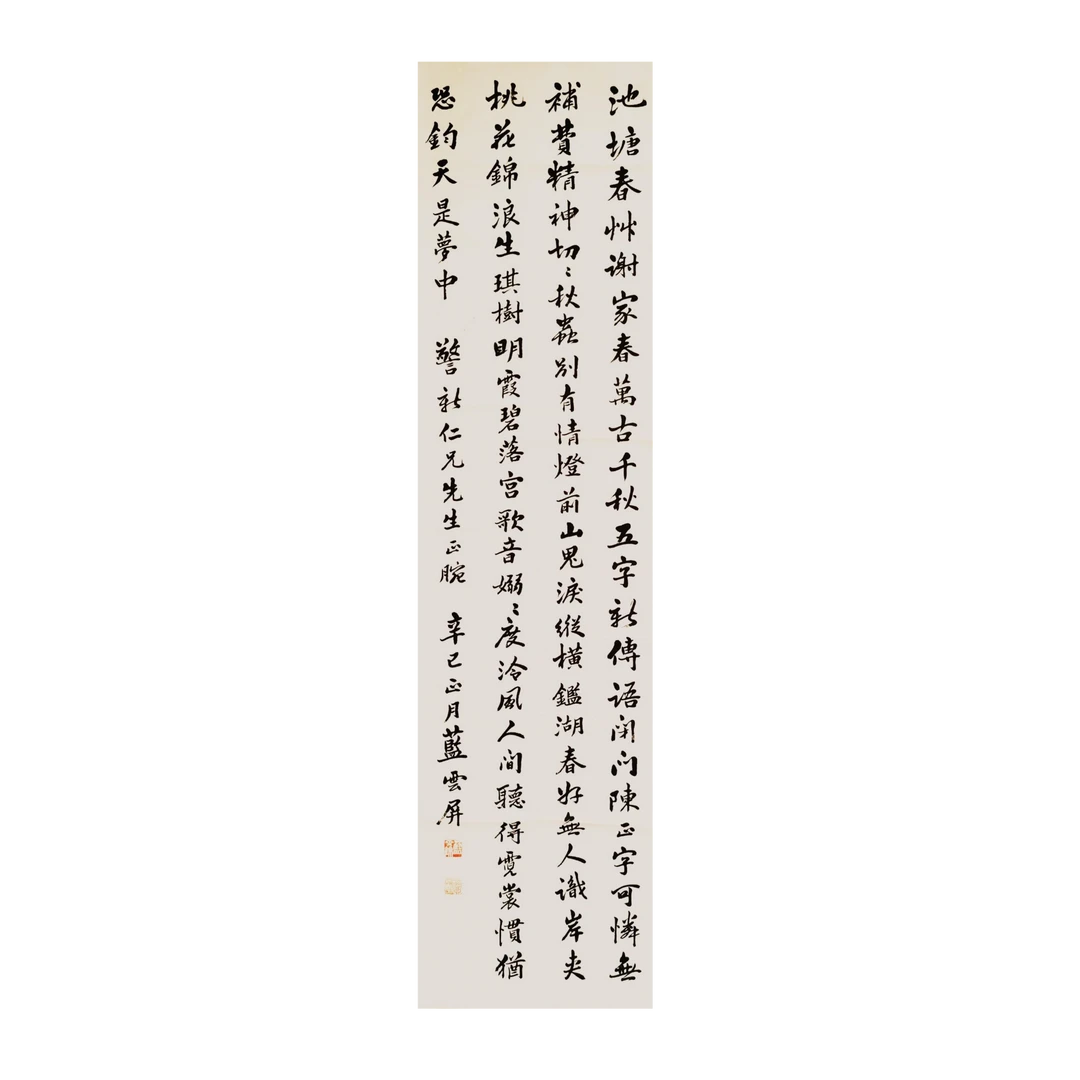 池塘春艸謝家春萬古千秋五字新傳語閉門陳正字可憐無
補費精神切〻秋蟲別有情燈前山鬼淚縱橫鑑湖春好無人識岸夾
桃花錦浪生琪樹明霞碧落宮歌音嫋〻度泠風人間聽得霓裳慣猶
恐鈞天是夢中 警新仁兄先生正腕 辛巳正月藍雲屏